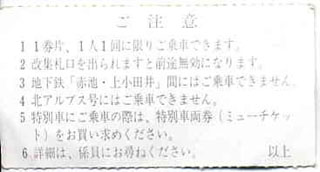 ご注意
1 1券片、1人1回に限りご乗車できます。
2 改集札口を出られますと前途無効になります。
3 地下鉄「赤池・上小田井」間にはご乗車できません。
4 北アルプス号にはご乗車できません。
5 特別車にご乗車の際は、特別車両券（ミューチケッ
ト）をお買い求めください。
6 詳細は、係員にお尋ねください。 以上